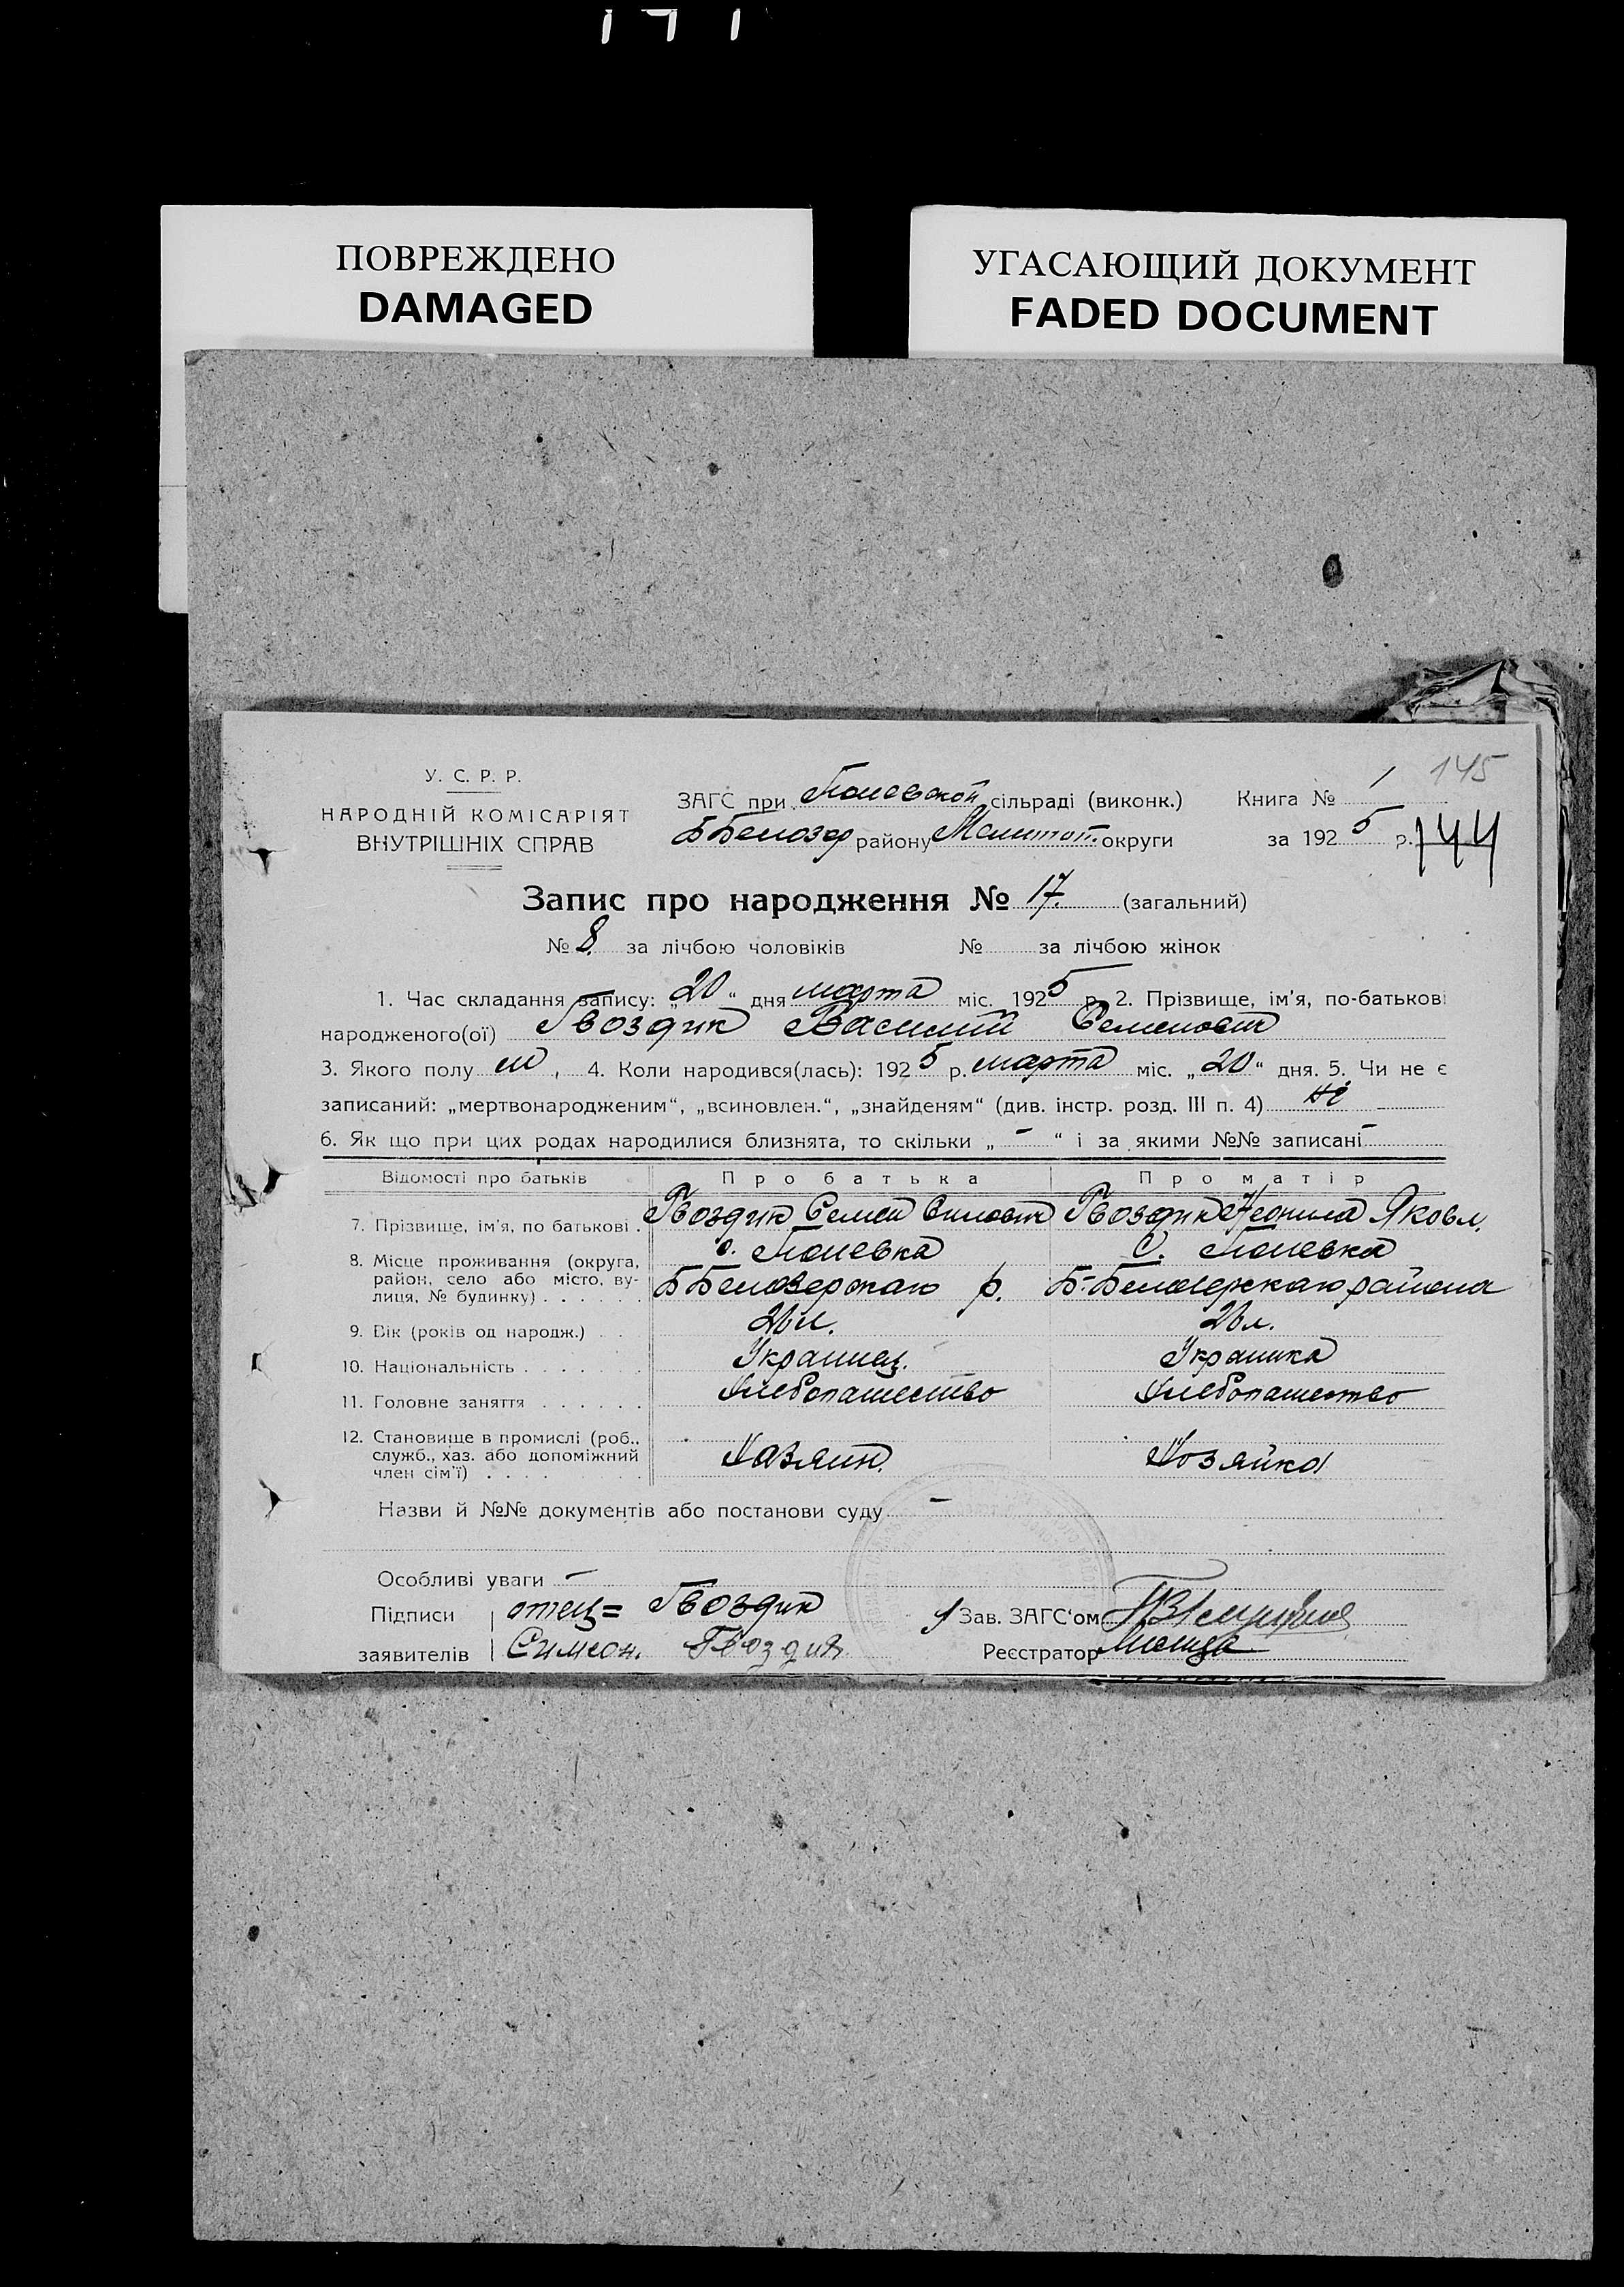 ПОВРЕЖДЕНО
DAMAGED
УГАСАЮЩИЙ ДОКУМЕНТ
FADED DOCUMENT
145
У. С. Р. Р.
НАРОДНІЙ КОМІСАРІЯТ
ВНУТРІШНІХ СПРАВ
ЗАГС при сільраді (виконк.) Книга № 1
Б Белозер району Мелитоп. округи за 1925 р. 144
Запис про народження № 17. (загальний)
№ 8. за лічбою чоловіків № за лічбою жінок
1. Час складання запису: „20“ дня марта міс. 1925 р. 2. Прізвище, ім'я, по-батькові
народженого(ої) Гвоздик Василий Семенович
3. Якого полу м, 4. Коли народився(лась): 1925 р. марта міс. „20“ дня. 5. Чи не є
записаний: „мертвонародженим“, „всиновлен.“, „знайденям“ (див. інстр. розд. III п. 4) не
6. Як що при цих родах народилися близнята, то скільки „ - “ і за якими №№ записані -
Відомості про батьків Про батька Про матір
7. Прізвище, ім'я, по батькові . Гвоздик Семен Гвоздик Неонила Яковл.
8. Місце проживання (округа, район, село або місто, вулиця, № будинку) . . . . . . с. Б Белозерскаго р. С. Б-Белозерскаго района
9. Вік (років од народж.) . . 26 л. 26 л.
10. Національність . . . . . Украинец. Украинка
11. Головне заняття . . . . . . Хлебопашество Хлебопашество
12. Становище в промислі (роб., служб., хаз. або допоміжний член сім'ї) . . . . . . Хазяин. Хозяйка
Назви й №№ документів або постанови суду -
Особливі уваги -
Підписи отец = Гвоздик Зав. ЗАГС'ом
заявителів Симеон. Гвоздик Реєстратор